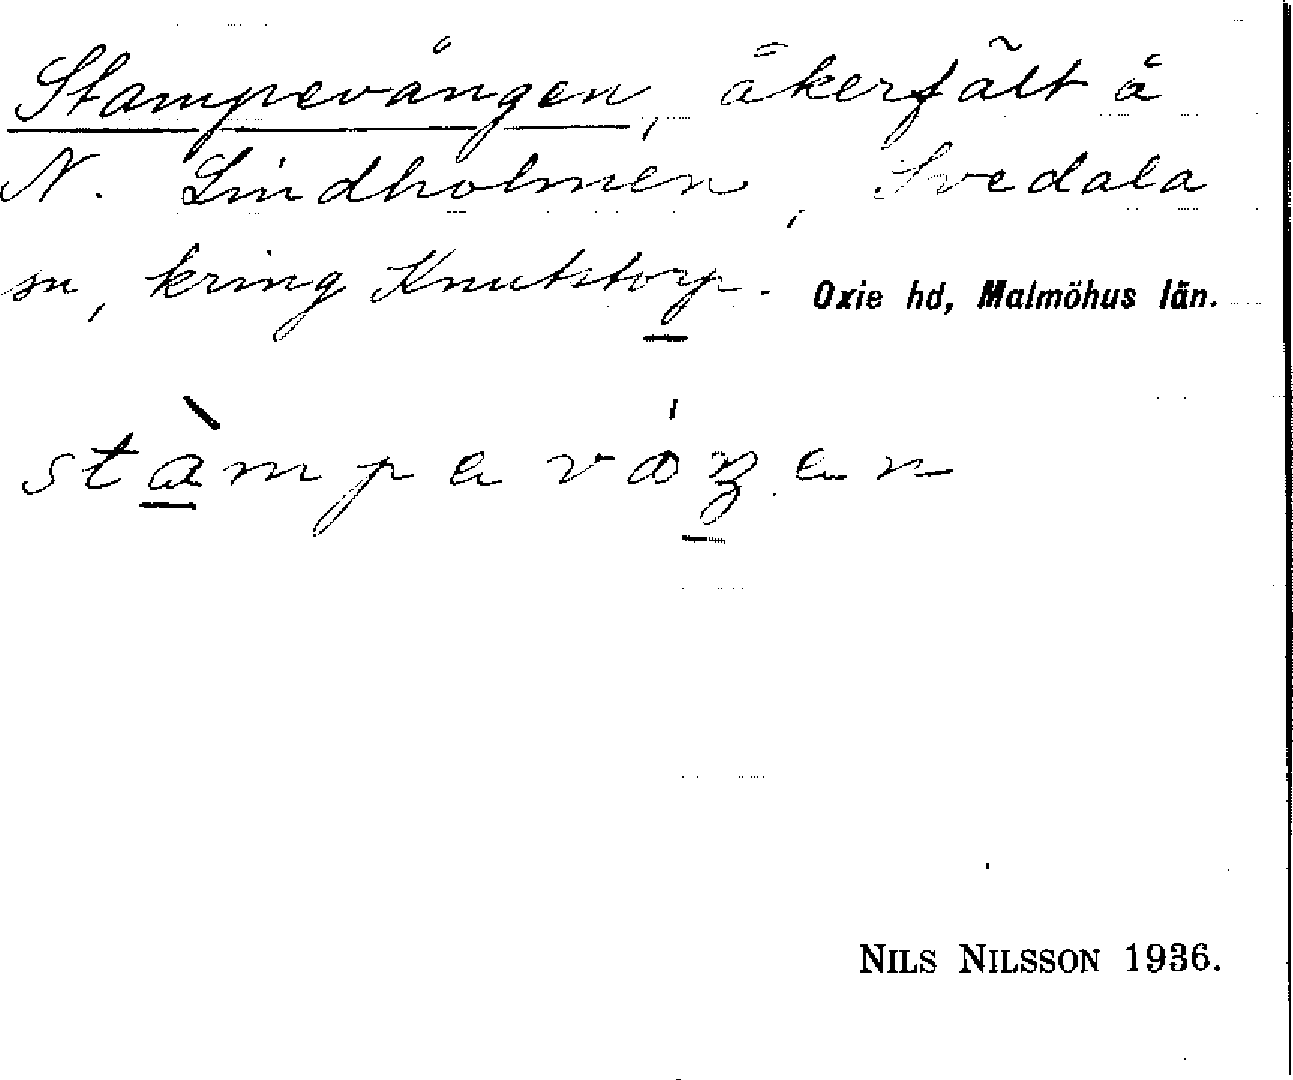 Stampevången, åkerfält å
N. Lindholmen, Svedala
sn, kring Knutstorp. Oxie hd, Malmöhus län.
NILS NILSSON 1936.